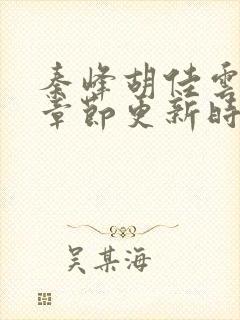 秦峰胡佳雲
章節更新時
吴某海